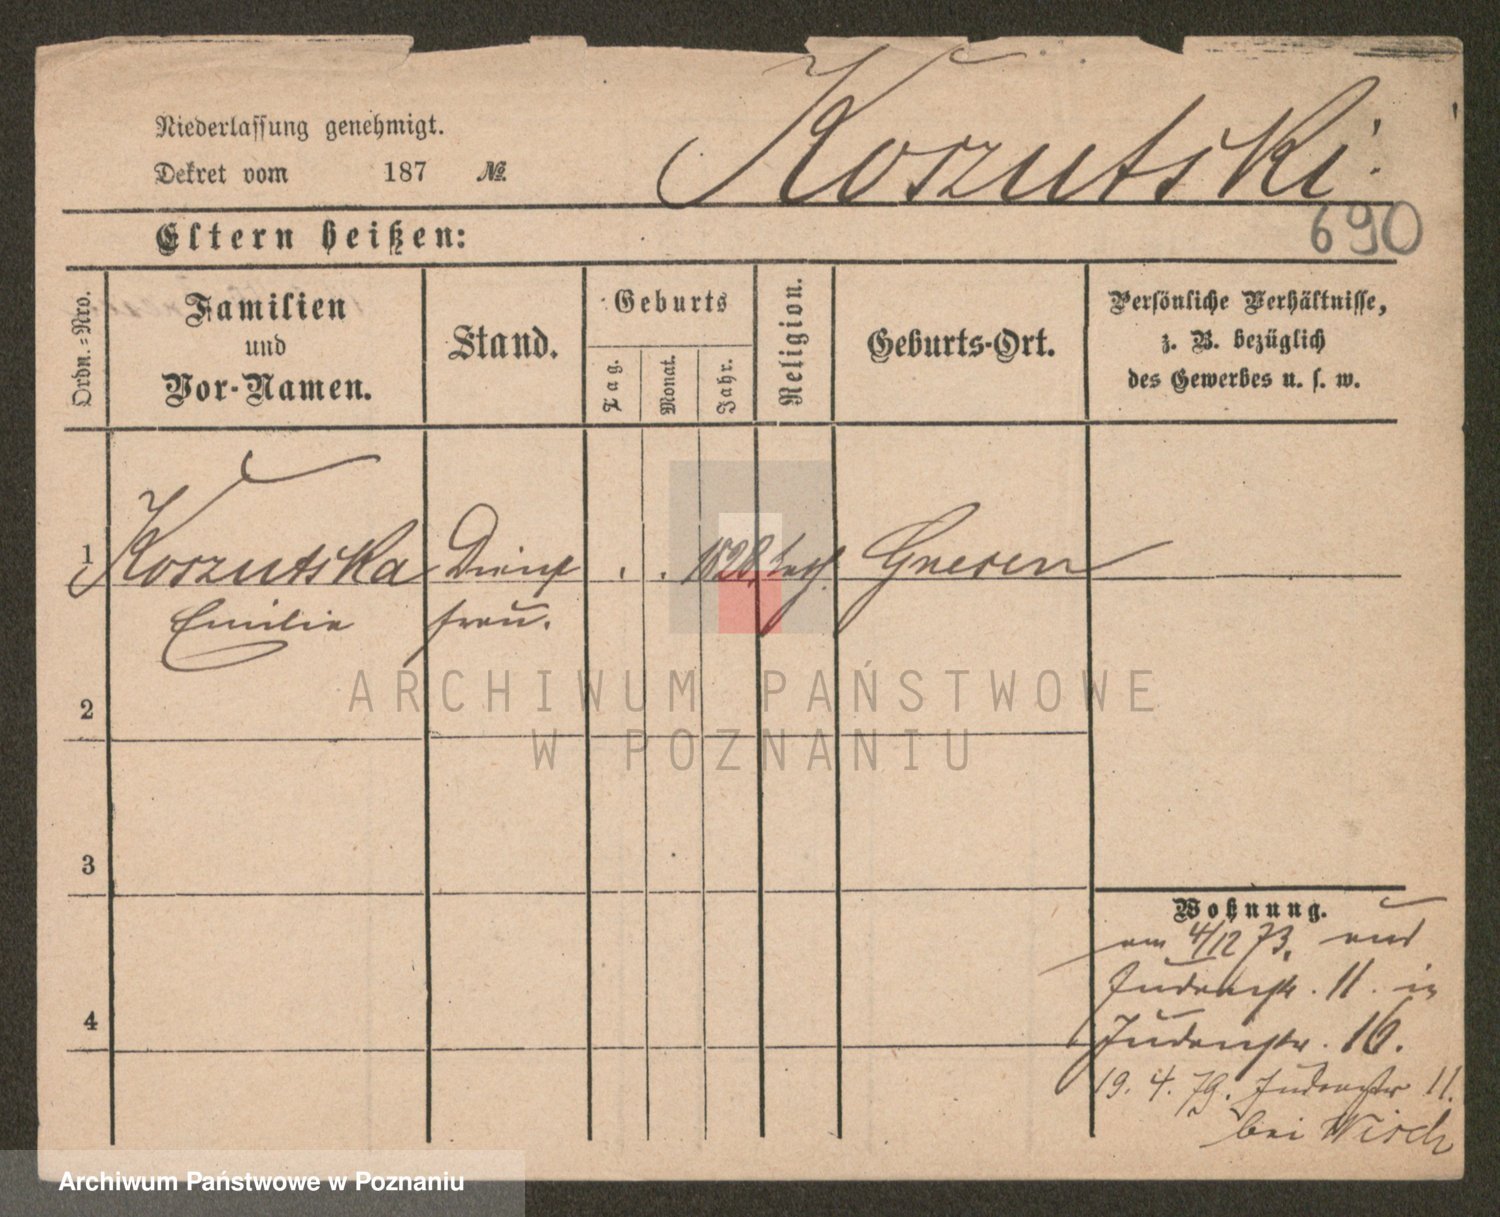 Niederlassung genehmigt.
Dekret vom 187 №.
Koszutski.
690
Eltern heißen:
Ordn.=Nro.
Familien
und
Vor-Namen.
Stand.
Geburts
Tag.
Monat.
Jahr.
Religion.
Geburts-Ort.
Persönliche Verhältnisse,
z. B. bezüglich
des Gewerbes u. s. w.
1 Koszutska Dienst . . 1828. kath. Gnesen
Emilie frau.
2
3
4
Wohnung.
am 4/12 73. aus
Judenstr. 11. in
Judenstr. 16.
19. 4. 79. Judenstr 11.
bei Wisch
ARCHIWUM PAŃSTWOWE
W POZNANIU
Archiwum Państwowe w Poznaniu